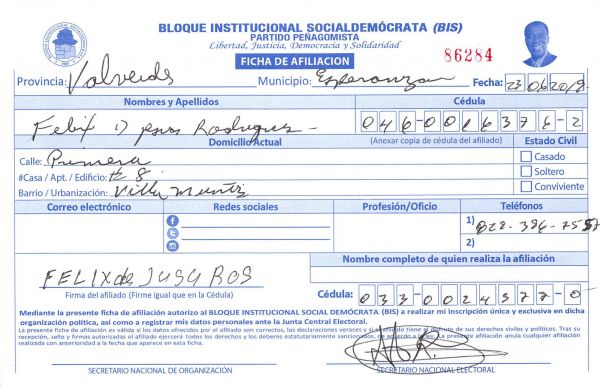 BLOQUE INSTITUCIONAL SOCIALDEMÓCRATA (BIS)
PARTIDO PEÑAGOMISTA
Libertad, Justicia, Democracia y Solidaridad
FICHA DE AFILIACION
86284
Provincia: Valverde Municipio: Esperanza Fecha: 23062018
Nombres y Apellidos Cédula
Felix D Jesus Rodriguez 046-0016376-2
Domicilio Actual (Anexar copia de cédula del afiliado) Estado Civil
Calle: Primera Casado
#Casa / Apt. / Edificio: # 8 Soltero
Barrio / Urbanización: Villa Muñoz Conviviente
Correo electrónico Redes sociales Profesión/Oficio Teléfonos
1)
2)
Nombre completo de quien realiza la afiliación
FELIX de JUSU ROS
Firma del afiliado (Firme igual que en la Cédula) Cédula: 033-0024377-0
Mediante la presente ficha de afiliación autorizo al BLOQUE INSTITUCIONAL SOCIAL DEMÓCRATA (BIS) a realizar mi inscripción única y exclusiva en dicha
organización política, así como a registrar mis datos personales ante la Junta Central Electoral.
La presente ficha de afiliación es válida si los datos ofrecidos por el afiliado son correctos, las declaraciones veraces y si el afiliado tiene el disfrute de sus derechos civiles y políticos. Tras su
recepción, sello y firmas autorizadas el afiliado ejercerá todos los derechos y los deberes estatutariamente sancionados, de acuerdo a la ley. La presente afiliación anula cualquier afiliación
realizada con anterioridad a la fecha que aparece en esta ficha.
SECRETARIO NACIONAL DE ORGANIZACIÓN SECRETARIO NACIONAL ELECTORAL